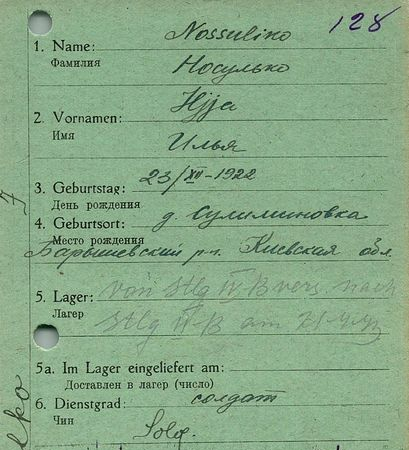 128
1. Name: Nossulko
Фамилия Носулько
2. Vornamen: Iljja
Имя Илья
3. Geburtstag: 23/XII-1922
День рождения
4. Geburtsort: д. Сулиминовка
Место рождения
Барышевский р-н. Киевская обл.
5. Lager: von Stlg IV B vers. nach
Лагер Stlg B am
5a. Im Lager eingeliefert am:
Доставлен в лагер (число)
6. Dienstgrad: солдат
Чин Sold.